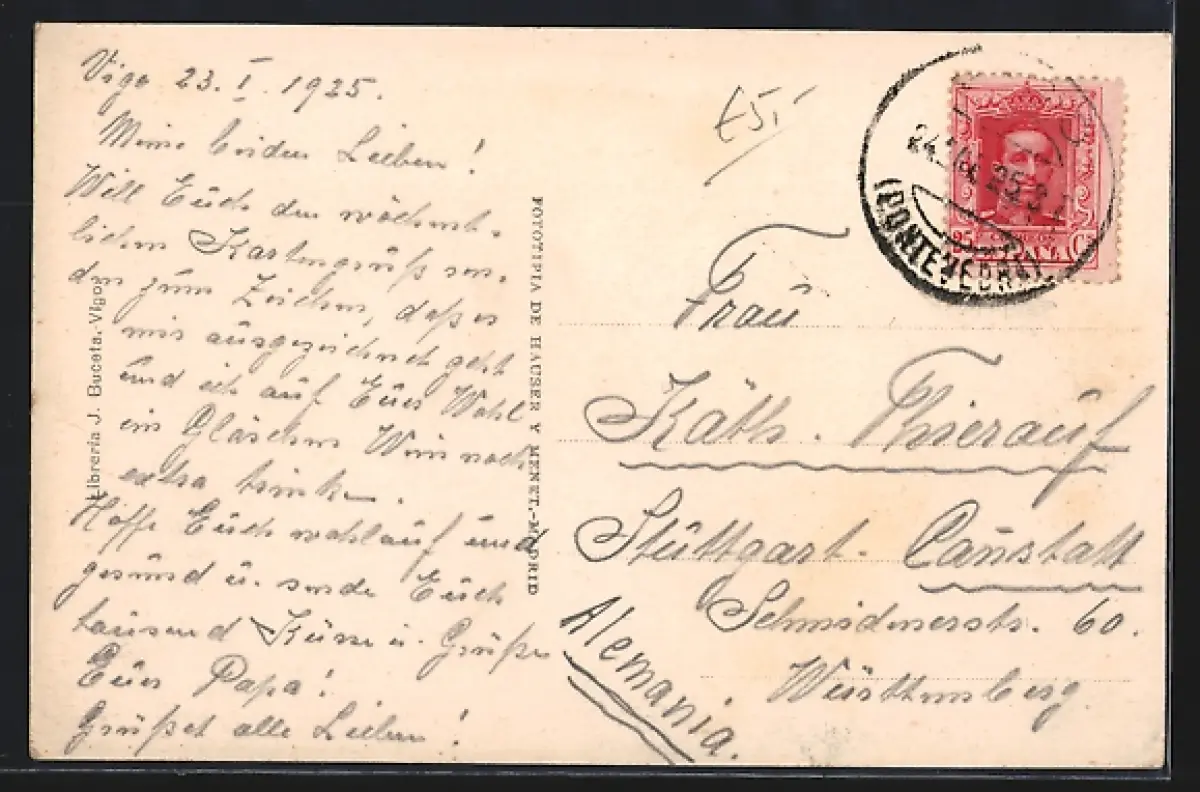 Vigo 23. I. 1925.
Meine beiden Lieben!
Will Euch den wöchent-
lichen Kartengruß sen-
den zum Zeichen, daß es
mir ausgezeichnet geht
und ich auf Euer Wohl
ein Gläschen Wein noch
extra trinke.
Hoffe Euch wohlauf und
gesund u. sende Euch
tausend Küsse u. Grüße
Euer Papa!
Grüßet alle Lieben!
Librería J. Buceta.-Vigo
FOTOTIPIA DE HAUSER Y MENET.-MADRID
€5,-
24 25
(PONTEVEDRA)
25 ESPAÑA Cs
Frau
Käth. Thierauf
Stuttgart. Cannstatt
Schmidenerstr. 60.
Württemberg
Alemania.